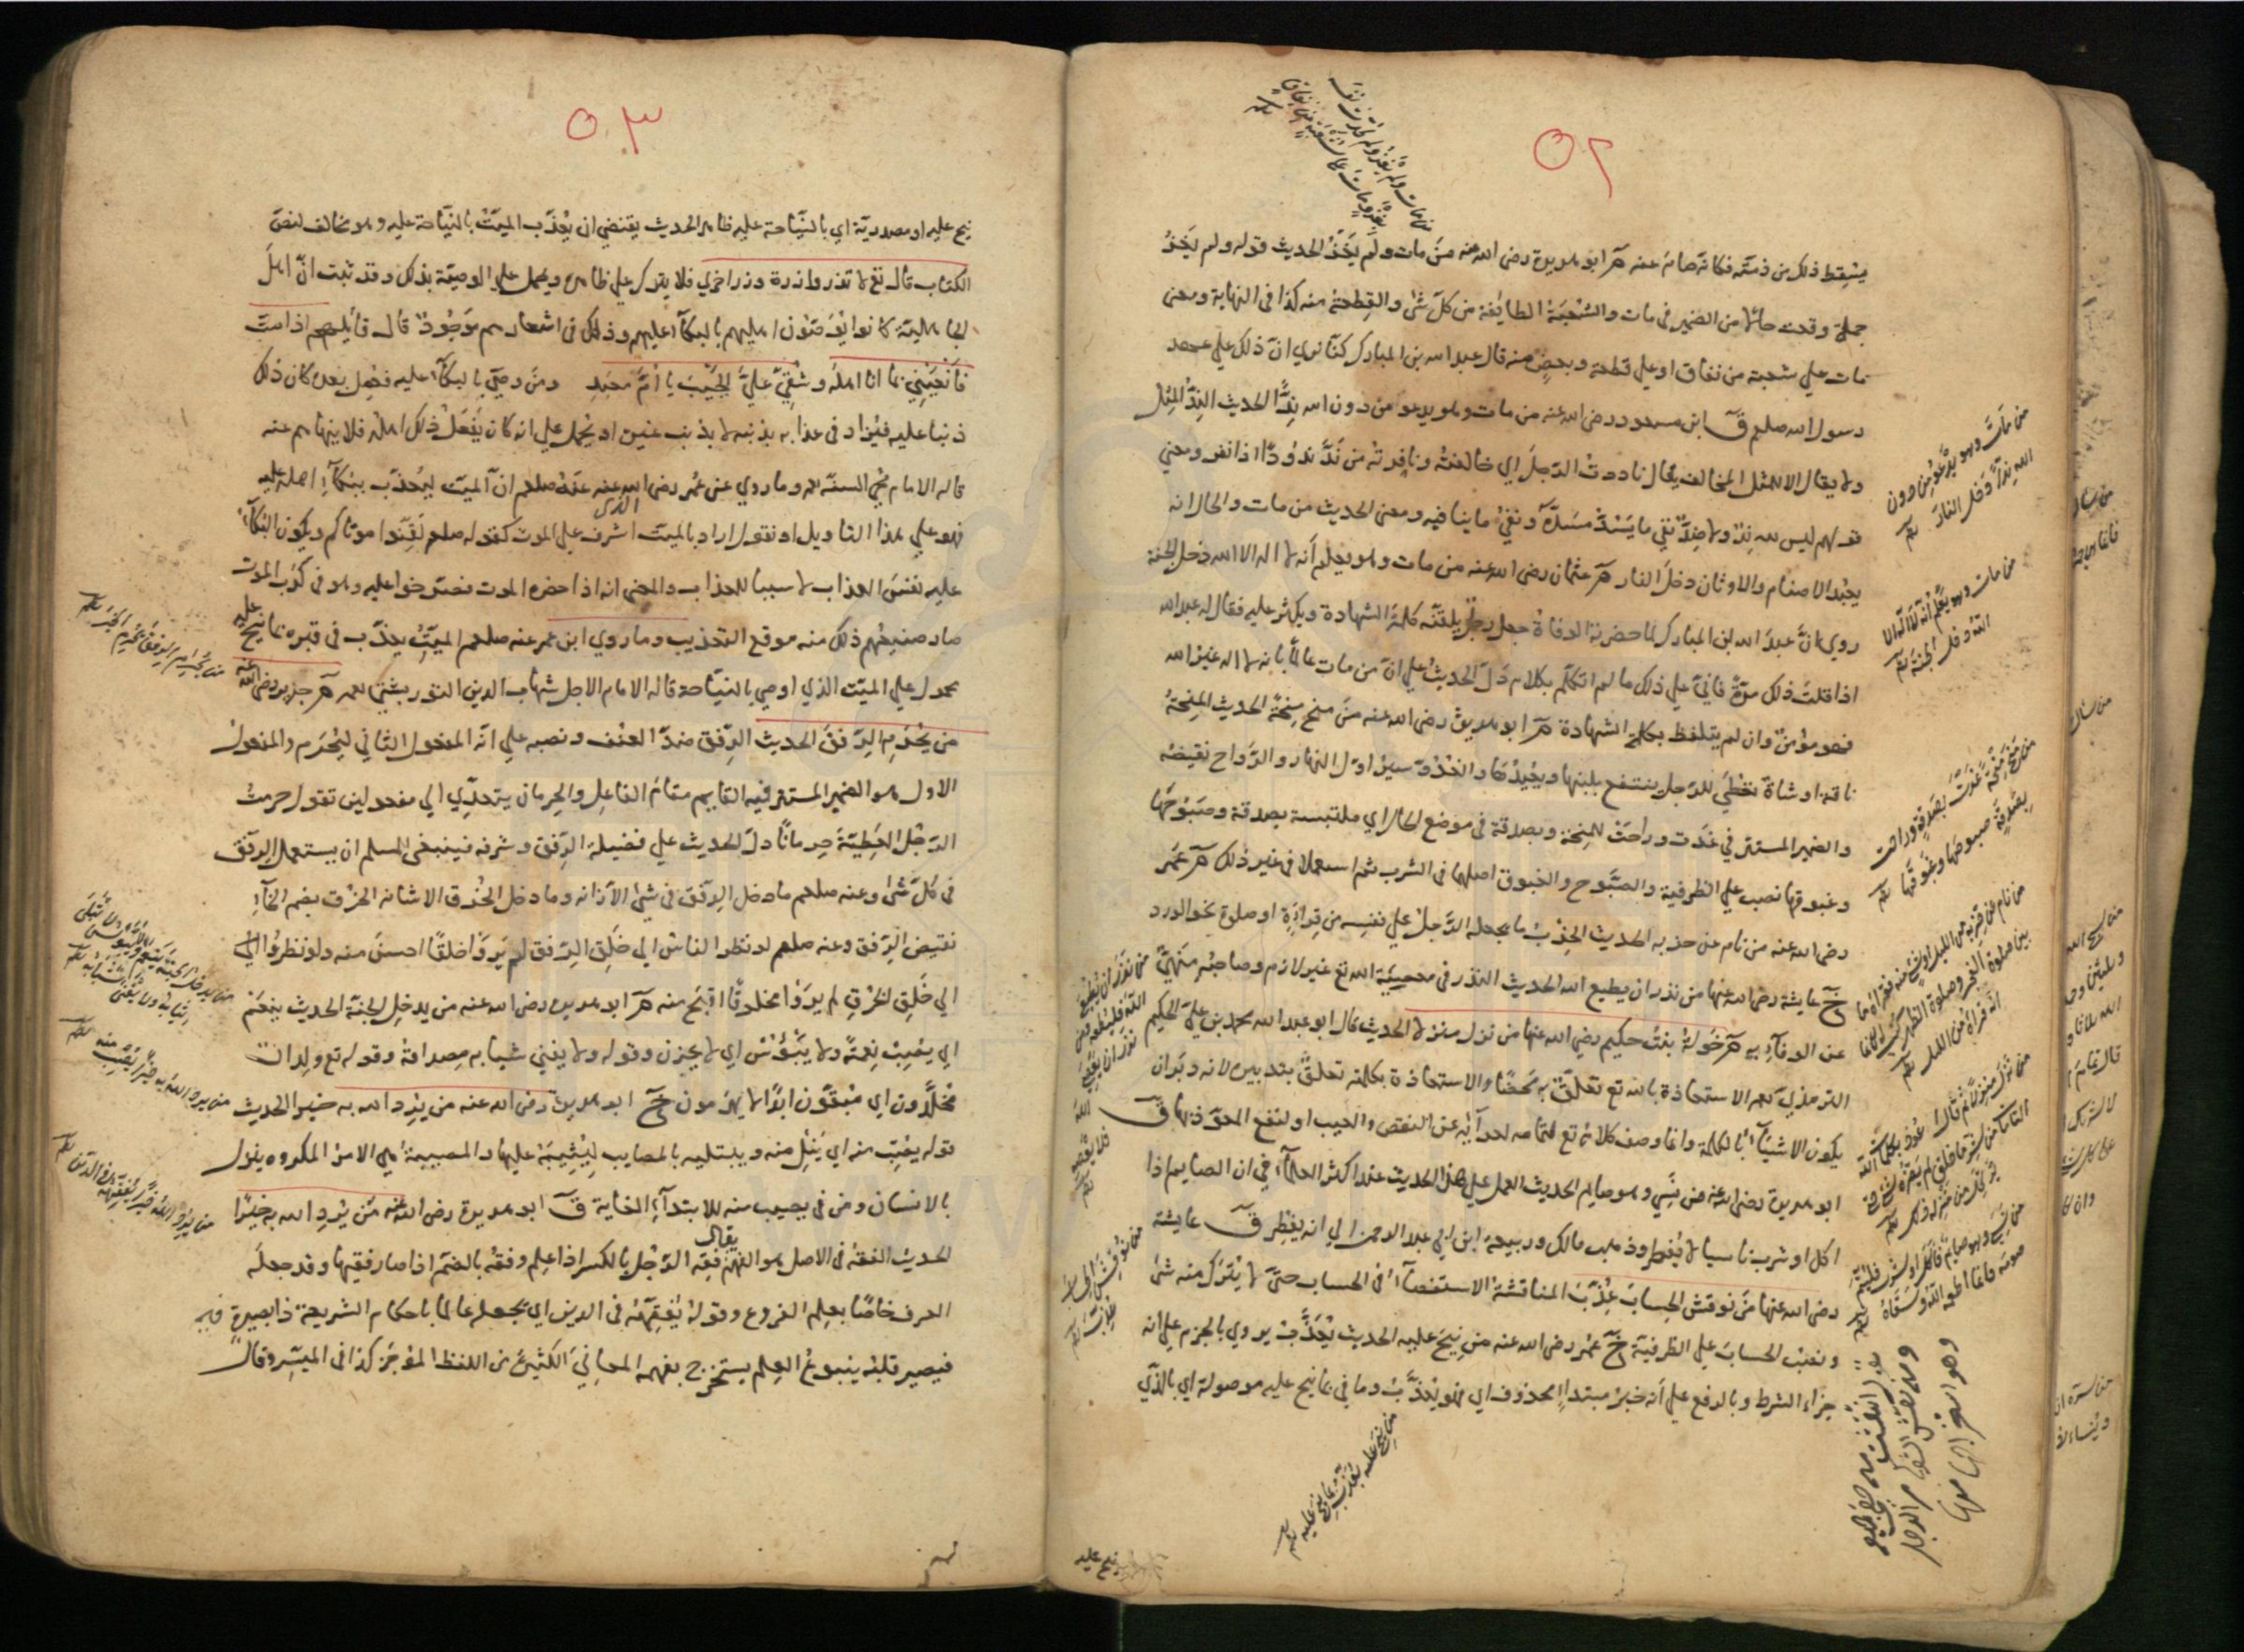 ٥٢
من مات ولم يغز ولم يحدث نفسه
بغزو مات على شعبة من نفاق
يسقط ذلك من ذمته فكانه صامه عنه م ابو هريرة رضى الله عنه من مات ولم يَغْزُ الحديث قوله ولم يغزُ
جملة وقعت حالا من الضمير فى مات والشعبة الطايفة من كل شئ والقطعة منه كذا فى النهاية ومعنى
مات علي شعبة من نفاق او علي قطعة وبعض منه قال عبد الله بن المبارك كنا نري انّ ذلك علي عهد
رسول الله صلعم ق ابن مسعود رضى الله عنه من مات وهو يدعو من دون الله نِدًّا الحديث النِدُّ المِثل
ولا يقال الا للمثل المخالف يقال ناددتُ الرّجلَ اي خالفتُه ونافرته من نَدَّ ندُودًا اذا نفر ومعني
قولهم ليس لله نِدّ ولا ضِدّ نفي ما يَسُدّ مَسَدَّهُ ونفي ما ينافيه ومعنى الحديث من مات والحال انه
يعبُد الاصنام والاوثان دخل النار م عثمان رضى الله عنه من مات وهو يعلم أنه لا اله الا الله دخل الجنة
روي انّ عبدَ الله ابن المبارك لما حضرته الوفاة جعل رجل يلقنّه كلمة الشهادة ويكثر عليه فقال له عبد الله
اذا قلتُ ذلك مرّة فانيّ علي ذلك ما لم اتكلّم بكلام دَلّ الحديث علي انّ من مات عالمًا بانه لا اله غير الله
فهو مؤمنٌ وان لم يتلفظ بكلمة الشهادة م ابو هريرة رضى الله عنه مَنْ منح مِنحةً الحديث المِنحةُ
ناقة او شاة تُعْطَى للرّجل ينتفع بلبنها ويُعِيدُها والغُدُوّ سيرُ اوّل النهار والرَّواح نقيضُه
والضمير المستتر في غدت وراحت للمنحة وبصدقة فى موضع الحال اي ملتبسة بصدقة وصَبُوحَها
وغبوقها نصب علي الظرفية والصَّبوح والغبوق اصلهما فى الشرب ثم استعملا فى غير ذلك م عُمَر
رضى الله عنه من نام عن حزبه الحديث الحِزْبُ ما يجعله الرَّجلُ علي نفسِه من قِراءَةٍ او صلوة نحو الورد
خ عايشة رضى الله عنها من نذر ان يطيع الله الحديث النذر فى معصِيَةِ الله تع غير لازم وصاحبُه مَنْهِيّ
عن الوفآءِ به م خَولةُ بنتُ حكيم رضى الله عنها من نزل منزلا الحديث قال ابو عبد الله محمد بن علي الحكيم
الترمذي رحمه الاستعاذة بالله تع تعلّقٌ به مَحضًا والاستعاذة بكلمته تعلّقٌ بتدبيره لانه دبَّرَ ان
يكون الاشيآءُ بالكلمة وانما وصف كلامه تع بالتمام لعرآئِه عن النقص والعيب او لنفع المعوّذ بها ق
ابو هريرة رضى الله عنه من نسِي وهو صايم الحديث العمل علي هذا الحديث عند اكثر العلمآء في ان الصايم اذا
اكل او شرب ناسيا لا يُفطر وذهب مالك وربيعة ابن ابي عبد الرحمن الي انه يفطِر ق عايشة
رضى الله عنها مَنْ نوقش الحِسابَ عُذِّبَ المناقشة الاستقصآءُ فى الحساب حتيّ لا يُترَك منه شئ
ونصبُ الحسابَ علي الظرفية خ عُمَر رضى الله عنه من نِيحَ عليه الحديث يُعَذَّبْ يروي بالجزم علي انه
جزاء الشرط وبالرفع علي أنه خبرُ مبتداءٍ محذوف اي فهو يُعذَّبُ وما في بما نيح عليه موصولة اي بالذّي
من مات وهو يدعو من دون
الله ندا دخل النار
من مات وهو يعلم انه لا اله الا
الله دخل الجنة
من منح منحة غدت بصدقة وراحت
بصدقة صبوحها وغبوقها
من نيح عليه يعذب بما نيح عليه
نيح عليه
٥٣
نيح عليه او مصدريّة اي بالنّياحة عليه ظاهر الحديث يقتضي ان يُعذّب الميّتُ بالنيّاحة عليه وهو مخالف لنصّ
الكتاب قال تع لا تزر وازرة وزر اخري فلا يترك علي ظاهره ويحمل علي الوصيّة بذلك وقد ثبت انّ اهلَ
الجاهليّة كانوا يُوَصّون اهليهم بالبكآء عليهم وذلك فى اشعارهم مَوجُودٌ قال قائِلهم اذا متّ
فانعَيْنِي بما انا اهلُه وشُقيّ عليَّ الجَيْبَ يا أمّ مَعبَدِ ومَنْ وصَّي بالبكآء عليه ففُعِل بعده كان ذلك
ذنبا عليه فيُزاد فى عذابه بذنبه لا بذنب غيره او يُحمل علي انه كان يُفعَلُ ذلك اهلُه فلا ينهاهم عنه
قاله الامام محي السنّة رحمه وما روي عن عُمر رضى الله عنه عنه صلعم انّ الميّت ليُعذّب ببُكآءِ اهله عليه
فهو علي هذا التاويل او نقول اراد بالميّت الذى اشرف علي الموت كقوله صلعم لَقِّنُوا موتاكم ويكون البُكآءُ
عليه نفسَ العذاب لا سببا للعذاب والمعنى انه اذا حضره الموت فصَرخوا عليه وهو فى كَرْب الموت
صار صنيعُهم ذلك منه موقع التعذيب وما روي ابن عمر عنه صلعم الميّتُ يعذّب فى قبره بما نِيح عليه
محمول علي الميّت الذي اوصي بالنيّاحة قاله الامام الاجل شهاب الدين التوربشتي رحمه م جرير رضى الله عنه
من يُحْرَم الرِّفقَ الحديث الرّفق ضدّ العنف ونصبه علي انّه المفعول الثاني ليُحْرَم والمفعول
الاول هو الضمير المستتر فيه القايم مقامَ الفاعِل والحِرمان يتعدّي الي مفعولين تقول حرمتُ
الرّجُلَ العَطِيّةَ حِرمانًا دلّ الحديث علي فضيلة الرّفق وشرفه فينبغى للمسلم ان يستعمل الرفق
فى كلّ شئ وعنه صلعم ما دخل الرّفق فى شئ الا زانه وما دخل الخُرق الا شانه الخرْق بضم الخآءِ
نقيض الرّفق وعنه صلعم لو نظر الناسُ الي خَلقِ الرّفق لم يَروْا خَلقًا احسنَ منه ولو نظرُوا الي
الي خَلقِ الخُرْقِ لم يرَوْا مخلوقًا اقبَح منه م ابو هريرة رضى الله عنه من يدخِل الجنة الحديث ينعَمْ
اي يُصِبْ نِعمةً ولا يَبْؤُسْ اي لا يحزن وقوله ولا يفني شبابه مِصداقُه وقوله تع ولدان
مُخلّدون اي مُبقَون ابدًا لا يهرَمون خ ابو هريرة رضى الله عنه من يرِدِ الله به خيرا الحديث
قوله يُصِبْ منه اي يَنَلْ منه ويبتليه بالمصايب ليُثِيبَه عليها والمصيبة هي الامرُ المكروه ينزل
بالانسان ومن في يصيب منه للابتدآءِ الغاية ق ابو هريرة رضى الله عنه مَنْ يُرِدِ الله به خيرًا
الحديث الفقهُ فى الاصل هو الفَهْم يقال فَقِهَ الرّجُل بالكسر اذا علِم وفقُه بالضمّ اذا صار فقيها وقد جعلَه
العرف خاصًا بعِلم الفروع وقولهُ يُفقِّهْهُ فى الدين اي يجعله عالما باحكام الشريعة ذا بصيرةٍ فيه
فيصير قلبُه ينبوعُ العِلم يستخرج بفهمه المعانيَ الكثيرةَ من اللفظ المُوجَز كذا فى الميسّر وقال
من يحرم الرفق يحرم الخير
من يرد الله به خيرا يصب منه
من يرد الله به خيرا يفقهه فى الدين